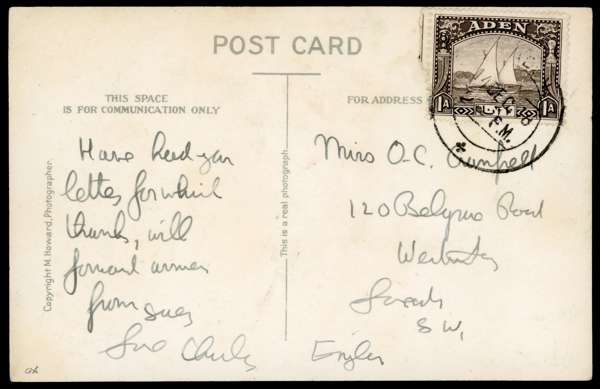 POST CARD
THIS SPACE
IS FOR COMMUNICATION ONLY
FOR ADDRESS
ADEN
1A
1A
DEC 38
P.M.
Have had your
letter for which
thanks, will
forward
from Suez
Love Charles
Miss O.C. Campbell
120 Belgrave Road
Westminster
London
S W1
England
Copyright M. Howard, Photographer.
This is a real photograph